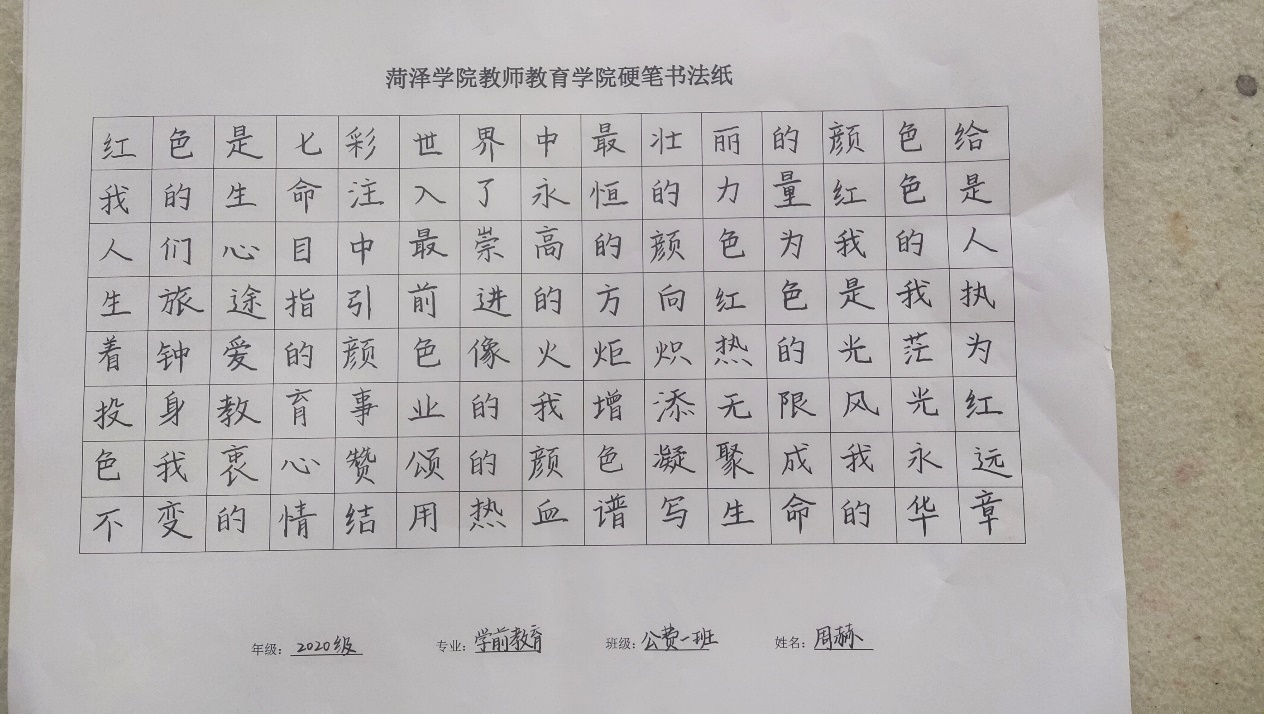 菏泽学院教师教育学院硬笔书法纸
红色是七彩世界中最壮丽的颜色给
我的生命注入了永恒的力量红色是
人们心目中最崇高的颜色为我的人
生旅途指引前进的方向红色是我执
着钟爱的颜色像火炬炽热的光茫为
投身教育事业的我增添无限风光红
色我衷心赞颂的颜色凝聚成我永远
不变的情结用热血谱写生命的华章
年级：2020级 专业：学前教育 班级：公费一班 姓名：周赫